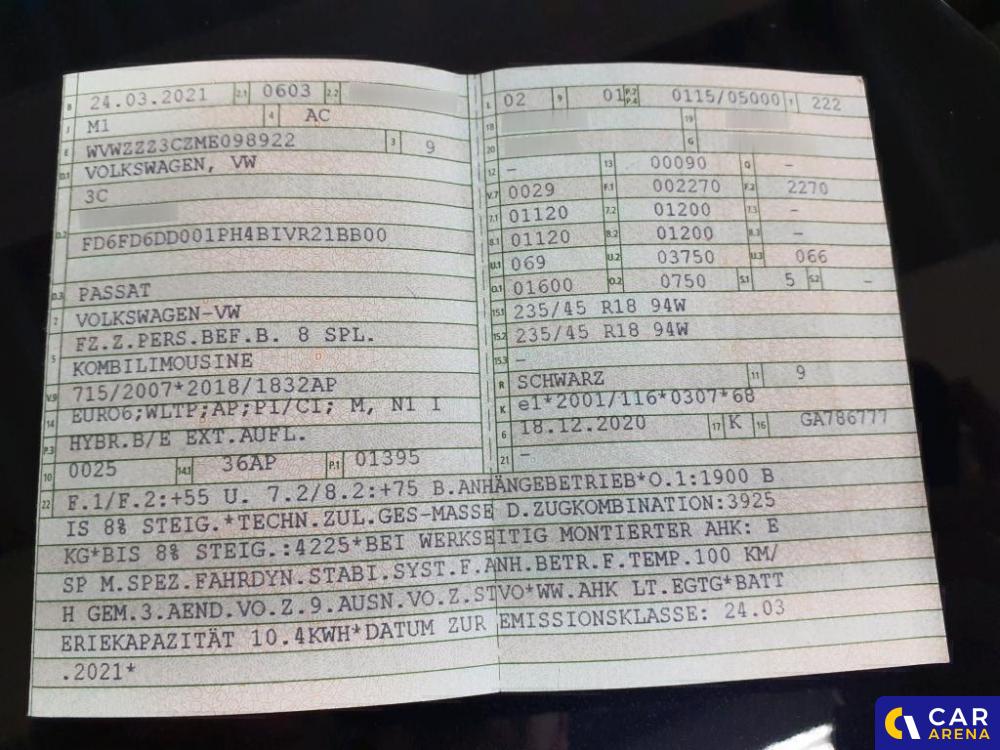 B 24.03.2021 2.1 0603 2.2
J M1 4 AC
E WVWZZZ3CZME098922 3 9
D.1 VOLKSWAGEN, VW
3C
D.2
FD6FD6DD001PH4BIVR21BB00
D.3 PASSAT
2 VOLKSWAGEN-VW
FZ.Z.PERS.BEF.B. 8 SPL.
5 KOMBILIMOUSINE
V.9 715/2007*2018/1832AP
14 EURO6;WLTP;AP;PI/CI; M, N1 I
P.3 HYBR.B/E EXT.AUFL.
10 0025 14.1 36AP P.1 01395
L 02 9 01 P.2 P.4 0115/05000 T 222
18 19
20 G
12 – 13 00090 Q –
V.7 0029 F.1 002270 F.2 2270
7.1 01120 7.2 01200 7.3 –
8.1 01120 8.2 01200 8.3 –
U.1 069 U.2 03750 U.3 066
O.1 01600 O.2 0750 S.1 5 S.2 –
15.1 235/45 R18 94W
15.2 235/45 R18 94W
15.3 –
R SCHWARZ 11 9
K e1*2001/116*0307*68
6 18.12.2020 17 K 16 GA786777
21 –
22 F.1/F.2:+55 U. 7.2/8.2:+75 B.ANHÄNGEBETRIEB*O.1:1900 B
IS 8% STEIG.*TECHN.ZUL.GES-MASSE D.ZUGKOMBINATION:3925
KG*BIS 8% STEIG.:4225*BEI WERKSEITIG MONTIERTER AHK: E
SP M.SPEZ.FAHRDYN.STABI.SYST.F.ANH.BETR.F.TEMP.100 KM/
H GEM.3.AEND.VO.Z.9.AUSN.VO.Z.STVO*WW.AHK LT.EGTG*BATT
ERIEKAPAZITÄT 10.4KWH*DATUM ZUR EMISSIONSKLASSE: 24.03
.2021*
CAR
ARENA